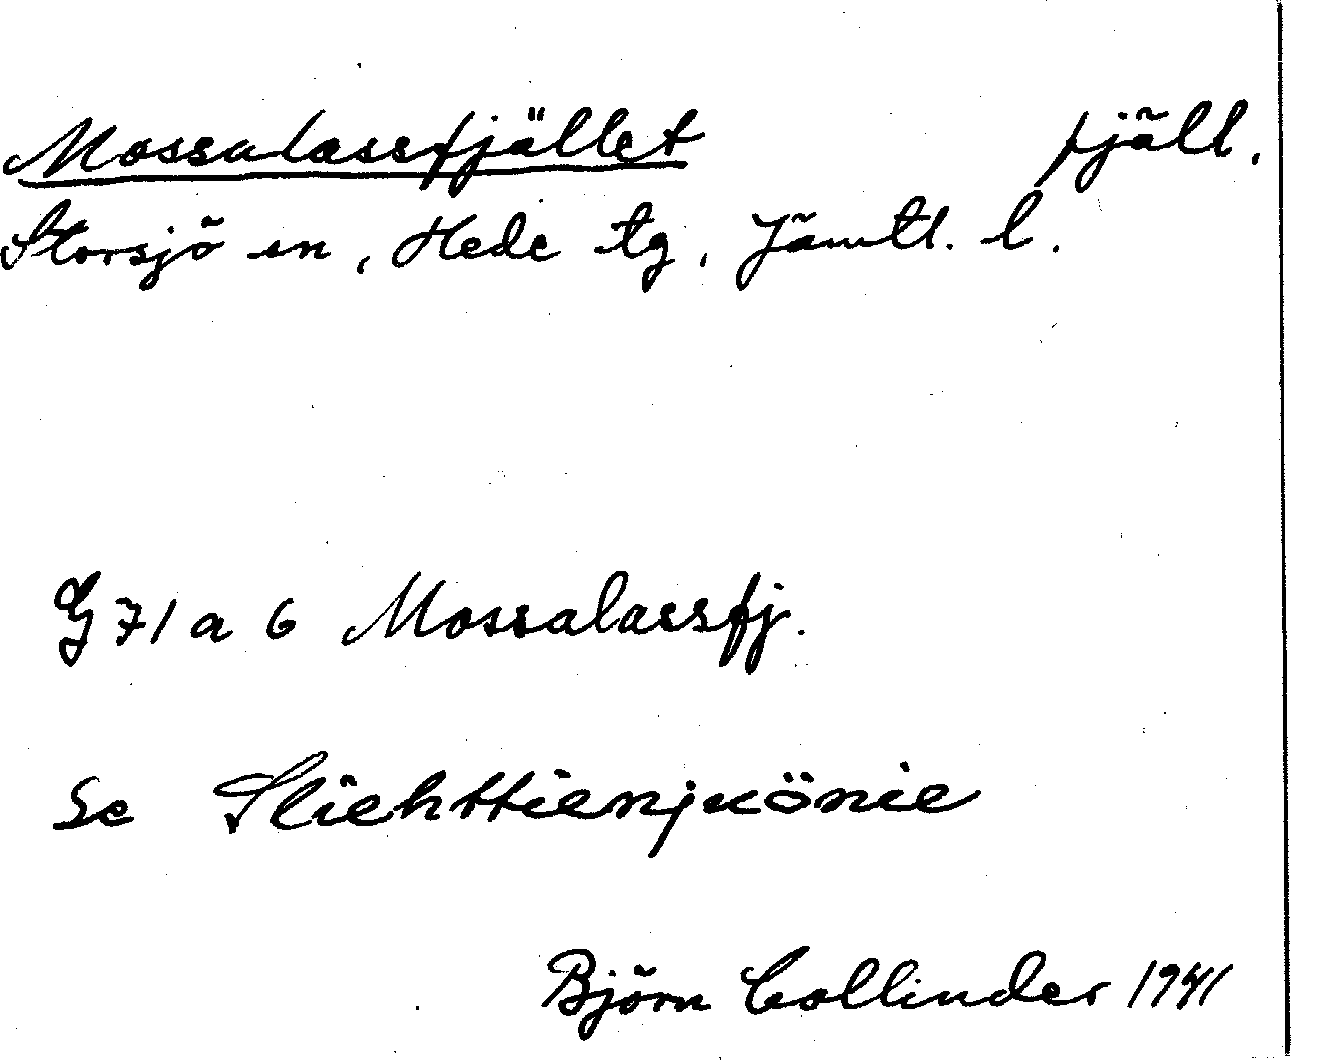 Mossalassfjället fjäll.
Storsjö sn, Hede tg, Jämtl. l.
G 71 a 6 Mossalassfj.
Se Sliehttienjuönie
Björn Collinder 1941